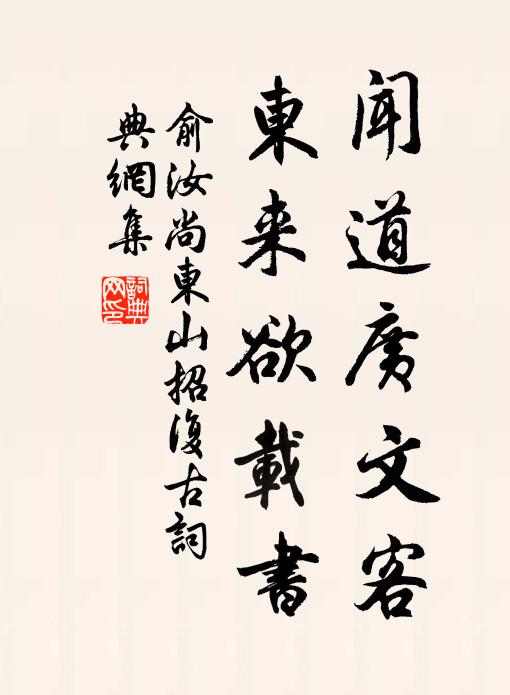 聞道廣文客
東来欲載書
俞汝尚東山招復古詞
典網集
詞典网印